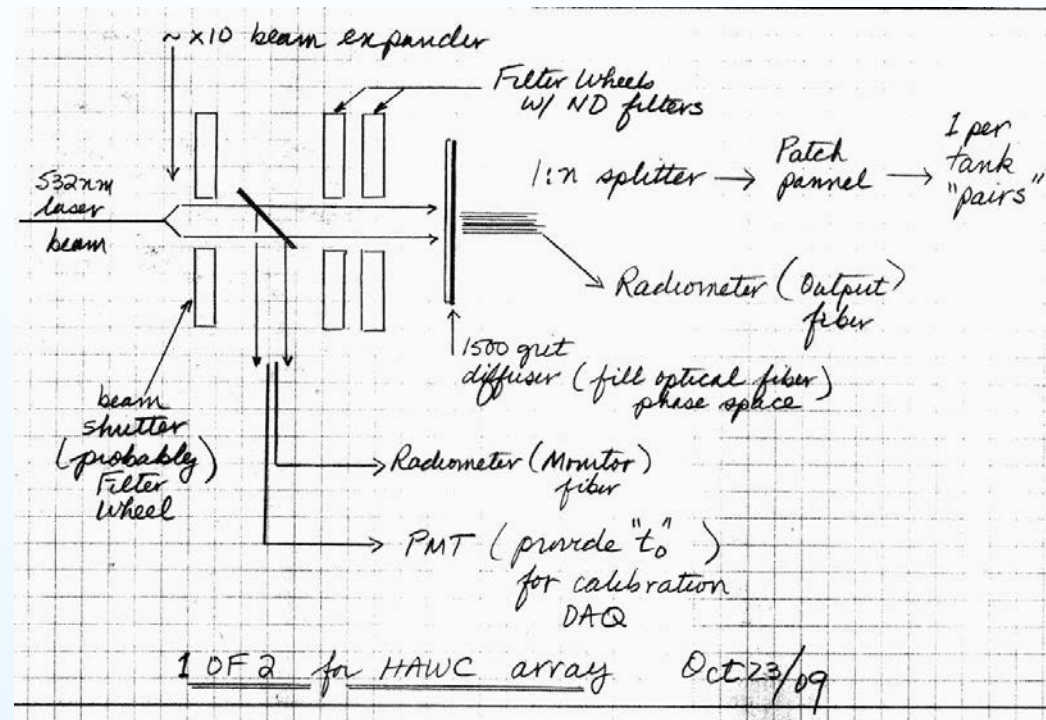 ~ x10 beam expander
Filter Wheels
w/ ND filters
532nm
laser
beam
1:n splitter → Patch pannel → 1 per tank "pairs"
Radiometer (Output)
fiber
1500 grit
diffuser (fill optical fiber)
phase space
beam
shutter
(probably)
Filter
Wheel
Radiometer (Monitor)
fiber
PMT (provide "t₀")
for calibration
DAQ
1 OF 2 for HAWC array Oct 23/09